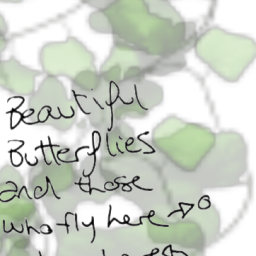 Beautiful
Butterflies
and those
who fly here →